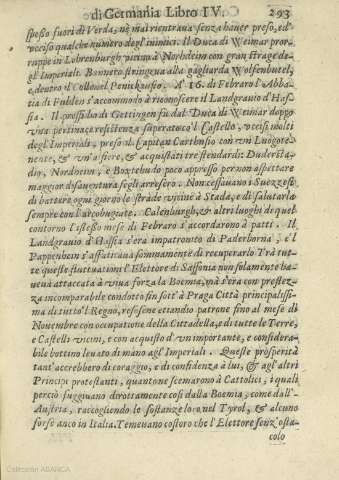 di Germania Libro IV. 293
spesso fuori di Verda, nè mai rientraua senza hauer preso, ed'
vcciso qualche número degl'inimici. Il Duca di Weimar pror-
ruppe in Lohrenburgh vicina à Northeim con gran strage de-
gl'Imperiali. Bonneto stringeua alla gagliarda Wolfenbutel,
e dentro il Collonel Penickausio. A' 16. di Febraro l'Abba-
tia di Fulden s'accommodò à riconoscere il Landgrauio d'Has-
sia. Il presidio di Gettingen fù dal Duca di Weimar doppo
vna pertinace resistenza superato co'l Castello, vccisi molti
degl'Imperiali, preso il Capitan Carthusio con vn Luogote-
nente, & vn'alfiere, & acquistati tre stendardi: Duderstadio,
Nordheim, e Boxtehudo poco appresso per non aspettare
maggior disauentura segli arresero. Non cessauano i Suezzesi
di battere ogni giorno le strade vicine à Stada, e di salutarla
sempre con l'arcobugiate. Calenburgh, & altri luoghi di quel
contorno l'istesso mese di Febraro s'accordarono à patti. Il
Landgrauio d'Hassia s'era impatronito di Paderborna, e'l
Pappenhein s'affaticaua sommamente di recuperarlo Trà tut-
te queste fluttuationi l'Elettore di Sassonia non solamente ha-
ueua attaccata à viua forza la Boemia, mà s'era con prestez-
za incomparabile condotto sin sott'à Praga Città principalissi-
ma di tutto'l Regno, resosene etiandio patrone fino al mese di
Nouembre con occupatione della Cittadella, e di tutte le Terre,
e Castelli vicini, e con acquisto d'vn importante, e considera-
bile bottino leuato di mano agl'Imperiali. Queste prosperità
tant'accrebbero di coraggio, e di confidenza à lui, & agl'altri
Principi protestanti, quantone scemarono à Cattolici, i quali
perciò fuggiuano dirottamente così dalla Boemia, come dall'-
Austria, raccogliendo le sostanze loro nel Tyrol, & alcuno
forse anco in Italia. Temeuano costoro che l'Elettore senz'osta-
colo
Colección ABANCA